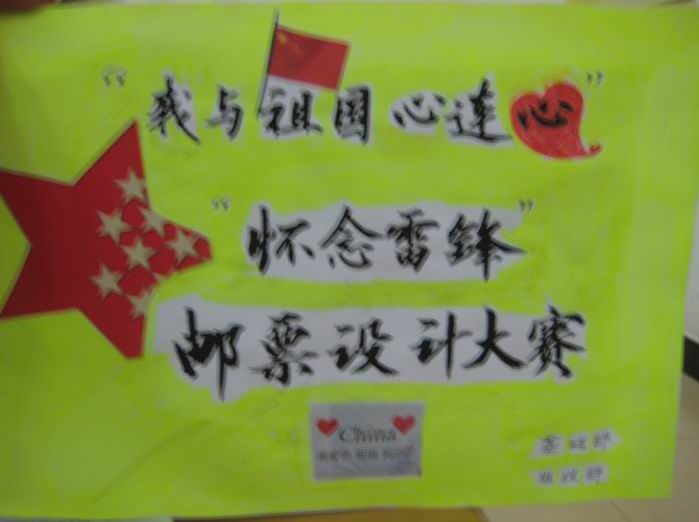 “我与祖国心连心”
“怀念雷锋”
邮票设计大赛
China